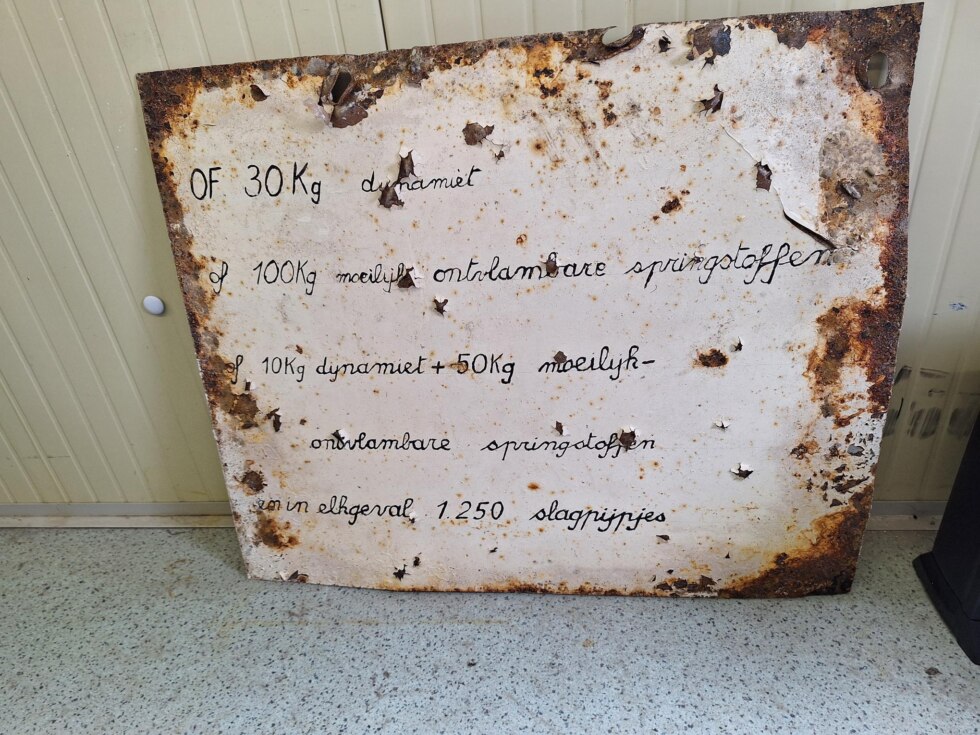 OF 30Kg dynamiet
of 100Kg moeilijk ontvlambare springstoffen
of 10Kg dynamiet + 50Kg moeilijk-
ontvlambare springstoffen
en in elkgeval 1.250 slagpijpjes